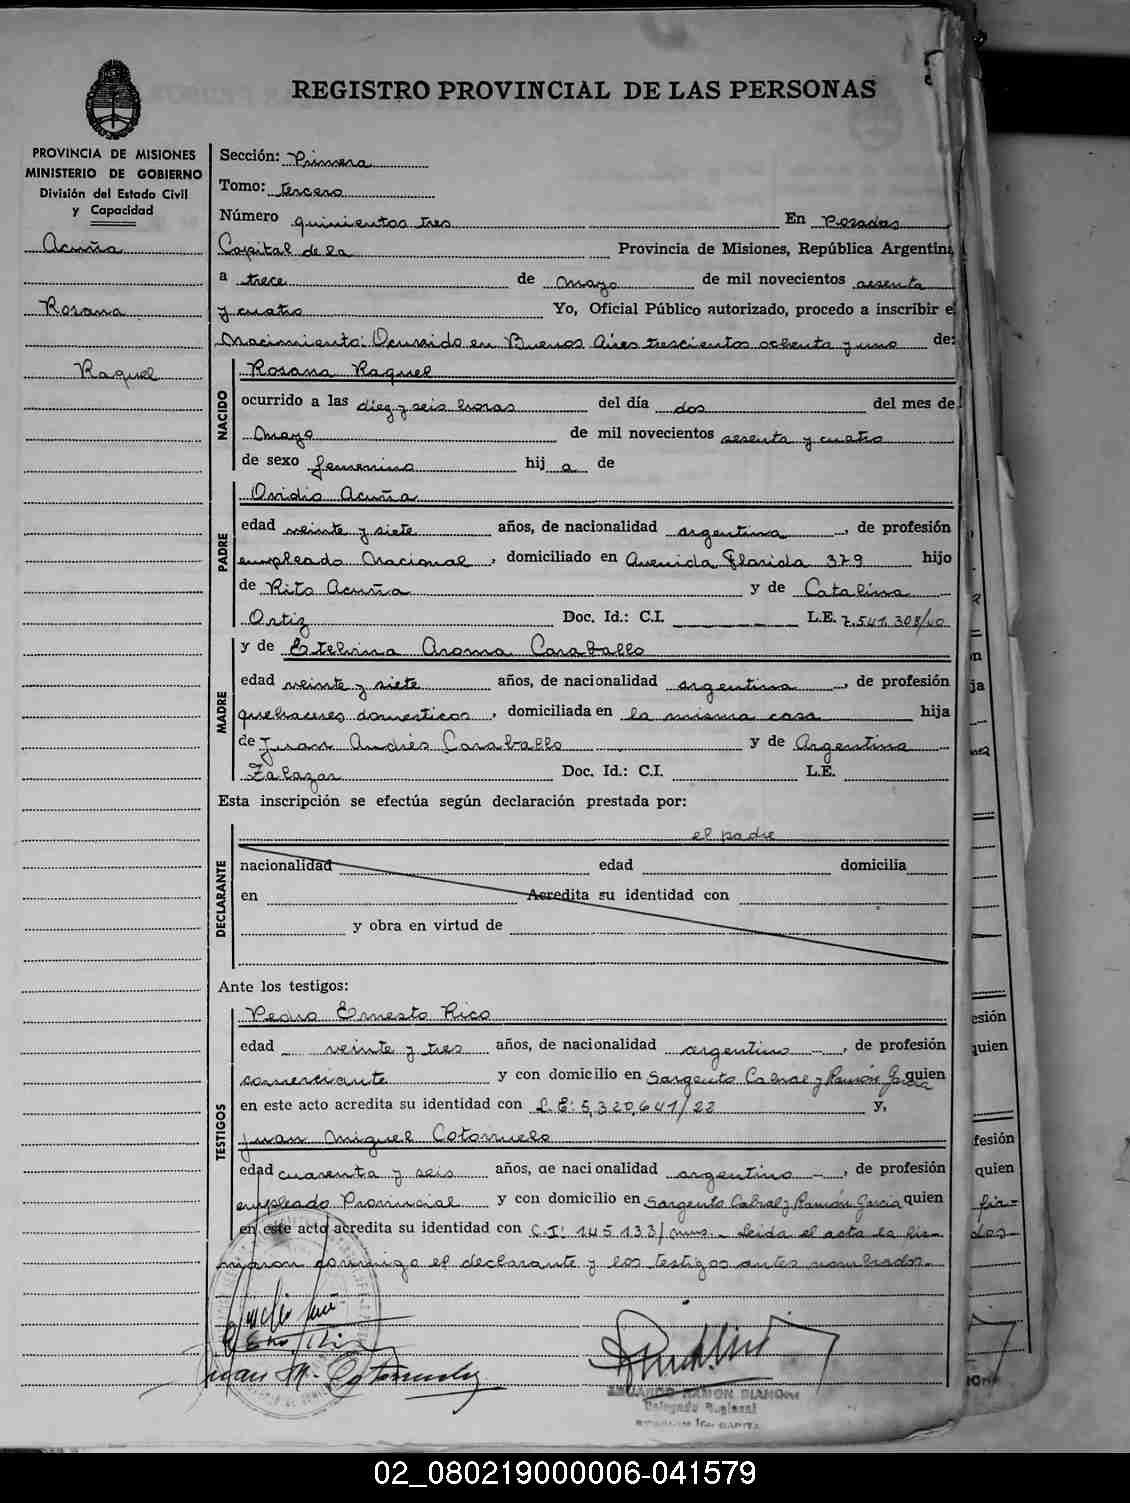 REGISTRO PROVINCIAL DE LAS PERSONAS
PROVINCIA DE MISIONES
MINISTERIO DE GOBIERNO
División del Estado Civil
y Capacidad
Acuña
Rosana
Raquel
Sección: Primera
Tomo: tercero
Número quinientos tres En Posadas
Capital de la Provincia de Misiones, República Argentina
a trece de mayo de mil novecientos sesenta
y cuatro Yo, Oficial Público autorizado, procedo a inscribir e
Nacimiento: Ocurrido en Buenos Aires trescientos ochenta y uno de:
NACIDO
Rosana Raquel
ocurrido a las diez y seis horas del día dos del mes de
Mayo de mil novecientos sesenta y cuatro
de sexo femenino hij a de
PADRE
Ovidio Acuña
edad veinte y siete años, de nacionalidad argentina, de profesión
empleado Nacional, domiciliado en Avenida Florida 379 hijo
de Rito Acuña y de Catalina
Ortiz Doc. Id.: C.I. L.E. 7.541.308/40
MADRE
y de Etelvina Aroma Caraballo
edad veinte y siete años, de nacionalidad argentina, de profesión
quehaceres domesticos, domiciliada en la misma casa hija
de Juan Andrés Caraballo y de Argentina
Zalazar Doc. Id.: C.I. L.E.
Esta inscripción se efectúa según declaración prestada por:
DECLARANTE
el padre
nacionalidad edad domicilia
en Acredita su identidad con
y obra en virtud de
Ante los testigos:
TESTIGOS
Pedro Ernesto Rico
edad veinte y tres años, de nacionalidad argentino, de profesión
comerciante y con domicilio en Sargento Cabral y Ramón Garcia quien
en este acto acredita su identidad con L.E: 5,320,641/22 y,
Juan Miguel Cotoruelo
edad cuarenta y seis años, de nacionalidad argentino, de profesión
empleado Provincial y con domicilio en Sargento Cabral y Ramón Garcia quien
en este acto acredita su identidad con C.I: 145133/mns. Leida el acta la fir-
maron conmigo el declarante y los testigos antes nombrados.
Juan M. Cotoruelo
EDUARDO RAMON
Delegado Regional
n
ja
esión
quien
fesión
quien
fir-
dos-
02_080219000006-041579